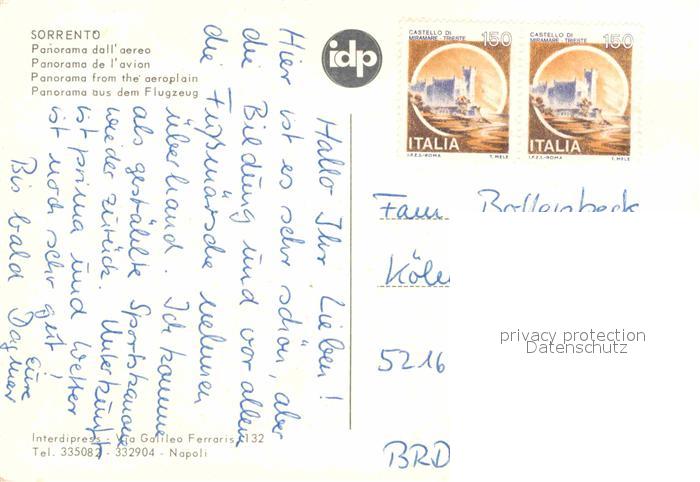 SORRENTO
Panorama dall' aereo
Panorama de l'avion
Panorama from the aeroplain
Panorama aus dem Flugzeug
idp
CASTELLO DI
MIRAMARE - TRIESTE
150
ITALIA
I.P.Z.S.-ROMA T. MELE
CASTELLO DI
MIRAMARE - TRIESTE
150
ITALIA
I.P.Z.S.-ROMA T. MELE
Hallo Ihr Lieben!
Hier ist es sehr schön, aber
die Bildung und vor allem
die Fußmärsche nehmen
überhand. Ich komme
als gestählte Sportskanone
wieder zurück. Unterkunft
ist prima und Wetter
ist noch sehr gut!
Bis bald Eure
Dagmar
Fam
5216
BRD
privacy protection
Datenschutz
Interdipress - Via Galileo Ferraris, 132
Tel. 335082 - 332904 - Napoli